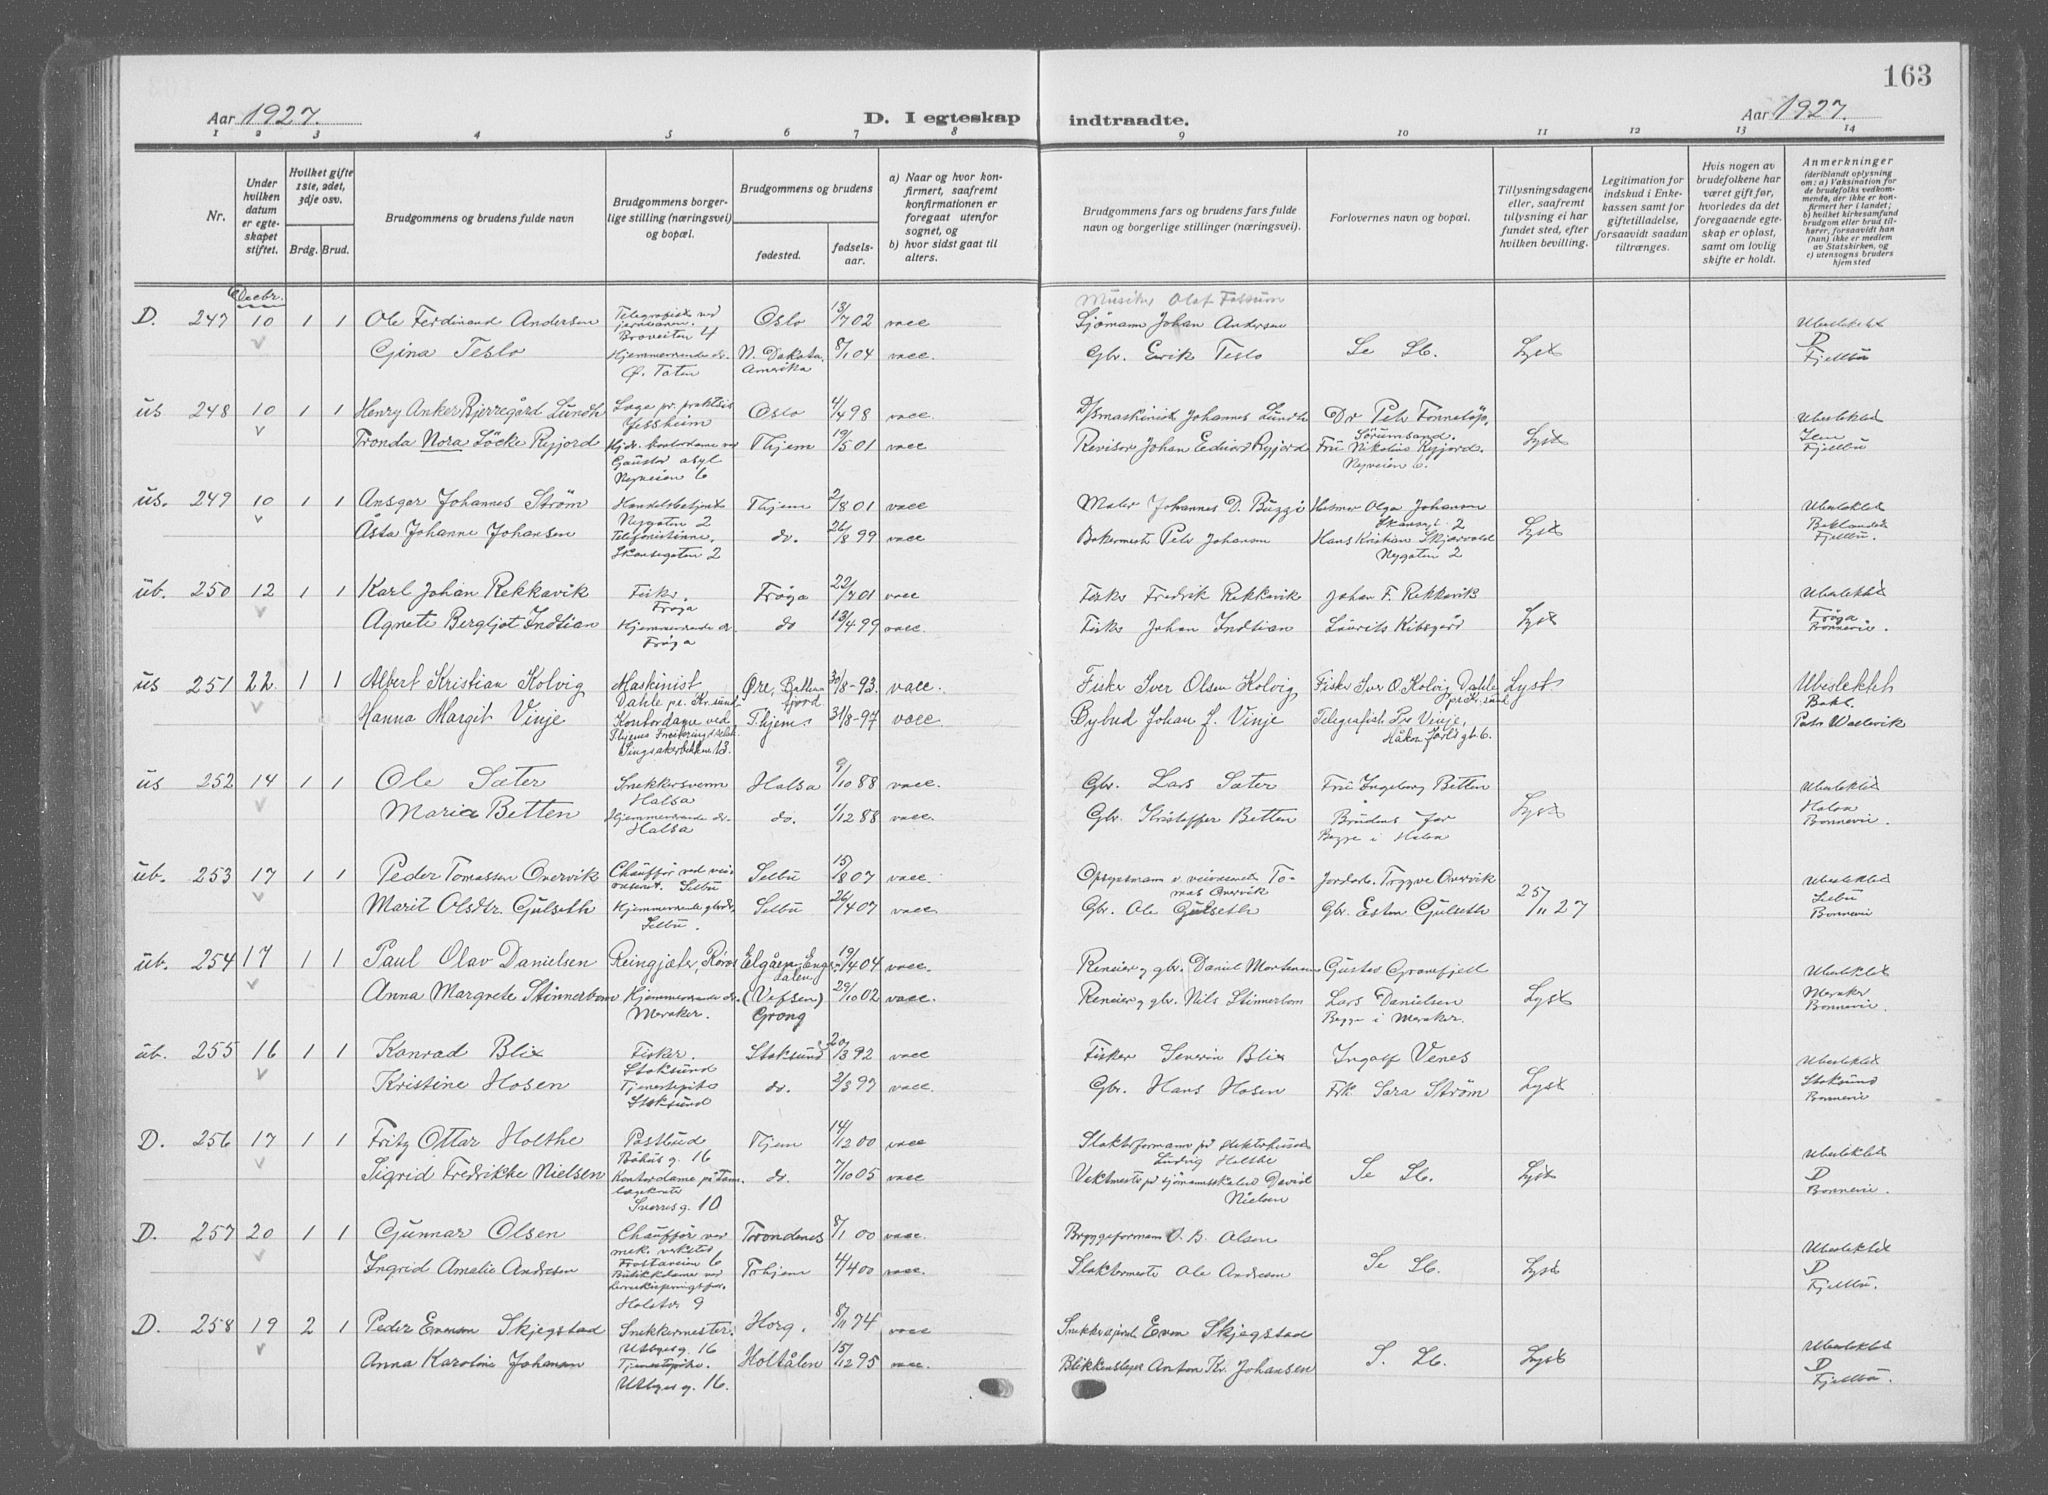 163
Aar 1927. D. I egteskap indtraadte. Aar 1927.
1 2 3 4 5 6 7 8 9 10 11 12 13 14
Nr.
Under hvilken datum er egteskapet stiftet.
Hvilket gifte 1ste, 2det, 3dje osv.
Brdg. Brud.
Brudgommens og brudens fulde navn
Brudgommens borgerlige stilling (næringsvei) og bopæl.
Brudgommens og brudens
fødested.
fødselsaar.
a) Naar og hvor konfirmert, saafremt konfirmationen er foregaat utenfor sognet, og
b) hvor sidst gaat til alters.
Brudgommens fars og brudens fars fulde navn og borgerlige stillinger (næringsvei).
Forlovernes navn og bopæl.
Tillysningsdagene eller, saafremt tillysning ei har fundet sted, efter hvilken bevilling.
Legitimation for indskud i Enkekassen samt for giftetilladelse, forsaavidt saadan tiltrænges.
Hvis nogen av brudefolkene har været gift før, hvorledes da det foregaaende egteskap er opløst, samt om lovlig skifte er holdt.
Anmerkninger
(deriblandt oplysning om: a) Vaksination for de brudefolks vedkommende, der ikke er konfirmert her i landet; b) hvilket kirkesamfund brudgom eller brud tilhører, forsaavidt han (hun) ikke er medlem av Statskirken, og c) utensogns bruders hjemsted
Decbr.
Musiker Olaf
D. 247 10 1 1 Ole Ferdinand Andersen Telegrafist ved jernbanen. 4 Oslo 13/7 02 vacc Sjømann Johan Andersen Ubeslektet
Gina Teslo Hjemmeværende dr. Ø. Toten N. Dakota, Amerika 8/1 04 vacc. Gbr. Erik Teslo Se Lb. Lyst D Fjellbu
us 248 10 1 1 Henry Anker Bjerregård Lundh Læge pr. praktsis Jessheim Oslo 4/4 98 vacc. Johannes Lundh Dr Petr Sørumsand. Ubeslektet
Tronda Nora Løcke Ryjord Kontordame ved Gaustad asyl Nyveien 6 Thjem 19/5 01 vacc. Revisor Johan Edvard Ryjord Frü Nikoline Ryjord. Nyveien 6. Lyst Fjellbu
us. 249 10 1 1 Ansgar Johannes Strøm Handelsbetjent Nygaten 2 Thjem 2/8 01 vacc Maler Johannes D. Buggi Olga Johansen 2 Ubeslektet
Åsta Johanne Johansen Telefonistinne. Skansegaten 2 do. 26/8 99 vacc. Bakermester Petr Johansen Hans Kristian Skjærvold Nygaten 2 Lyst Baklandet Fjellbu.
ub. 250 12 1 1 Karl Johan Rekkavik Fisker. Frøya Frøya 22/7 01 vacc Fisker Fredrik Rekkavik Johan F. Rekkavik Ubeslektet
Agnete Bergljot Indtian Hjemmeværende dr. Frøya do 13/4 99 vacc. Fisker Johan Indtian Laurits Kibsgård Lyst Frøya Bonnevie.
us 251 22. 1 1 Albert Kristian Kolvig Maskinist Dahle pr. Kr.sund Øre, Battenfjord 30/8-93. vacc. Fisker Iver Olsen Kolvig, Fisker Iver O. Kolvig Dahle pr Kr.sund Lyst Ubeslektet
Hanna Margit Vinje Kontordame ved Thjems Singsakerbakken 13. Thjem 31/8-97 vacc. Bybud Johan J. Vinje Telegrafist Per Vinje, Håkon Jarlsgt 6. Bakl. Petr Wadevik
us 252 14 1 1 Ole Sæter Snekkersvenn Halsa Halsa 9/10 88 vacc. Gbr. Lars Sæter Frü Ingeborg Betten Ubeslektet
Maria Betten Hjemmeværende dr. Halsa do. 1/12 88 vacc. Gbr. Kristoffer Betten Brudens far Begge i Halsa Lyst Halsa Bonnevie.
ub. 253 17 1 1 Peder Tomassen Overvik Chauffør ved veivæsenet. Selbu Selbu 15/8 07 vacc. Opsynsmann v veivæsenet Tomas Overvik Jordarb. Trygve Overvik Ubeslektet
Marit Olsdtr. Gulseth Hjemmeværende gbrdr. Selbu. Selbu 26/4 07 vacc. Gbr. Ole Gulseth Gbr. Esten Gulseth 25/11 27 Selbu Bonnevie
ub. 254 17 1 1 Paul Olav Danielsen Reingjæter, Røros Elgåen, Engerdalen 19/4 04 vacc. Reneier og gbr. Daniel Mortensen Gustav Grønfjell Ubeslektet
Anna Margrete Stinnerbom Hjemmeværende dr. Meraker. (Vefsen) Grong 29/10 02 vacc. Reneier og gbr. Nils Stinnerbom Lars Danielsen Begge i Meraker. Lyst Meraker Bonnevie.
ub. 255 16 1 1 Konrad Blix Fisker. Stoksund Stoksund 20/3 92 vacc Fisker Severin Blix Ingolf Venes Ubeslektet
Kristine Hosen Tjenestepike Stoksund do. 2/3 97 vacc. Gbr. Hans Hosen Frk. Sara Strøm Lyst Stoksund Bonnevie
D. 256 17 1 1 Fritz Ottar Holthe Postbud g. 16 Thjem 14/12 00 vacc Slakterformann på slakterhuset Ludvig Holthe Ubeslektet
Sigrid Fredrikke Nielsen Kontordame på Sverresg. 10 do. 7/10 05 vacc Vektmester på sjømannsskolen David Nielsen Se Lb. Lyst D Bonnevie.
D. 257 20 1 1 Gunnar Olsen Chauffør ved mek. verksted Frostaveien 6 Trondenes 8/1 00 vacc. Bryggeformann O. B. Olsen Ubeslektet
Ingrid Amalie Andresen Butikkdame ved Holstvr. 9 Trhjem 4/4 00 vacc. Slaktermester Ole Andresen Se Lb. Lyst D Fjellbu.
D. 258 19 2 1 Peder Evensen Skjegstad Snekkermester. g. 16 Horg. 8/11 74 vacc Even Skjegstad Ubeslektet
Anna Karoline Johansen Tjenestepike. g. 16. Holtålen 15/12 95 vacc. Blikkenslager Anton Kr. Johansen S. Lb. Lyst D Fjellbu.